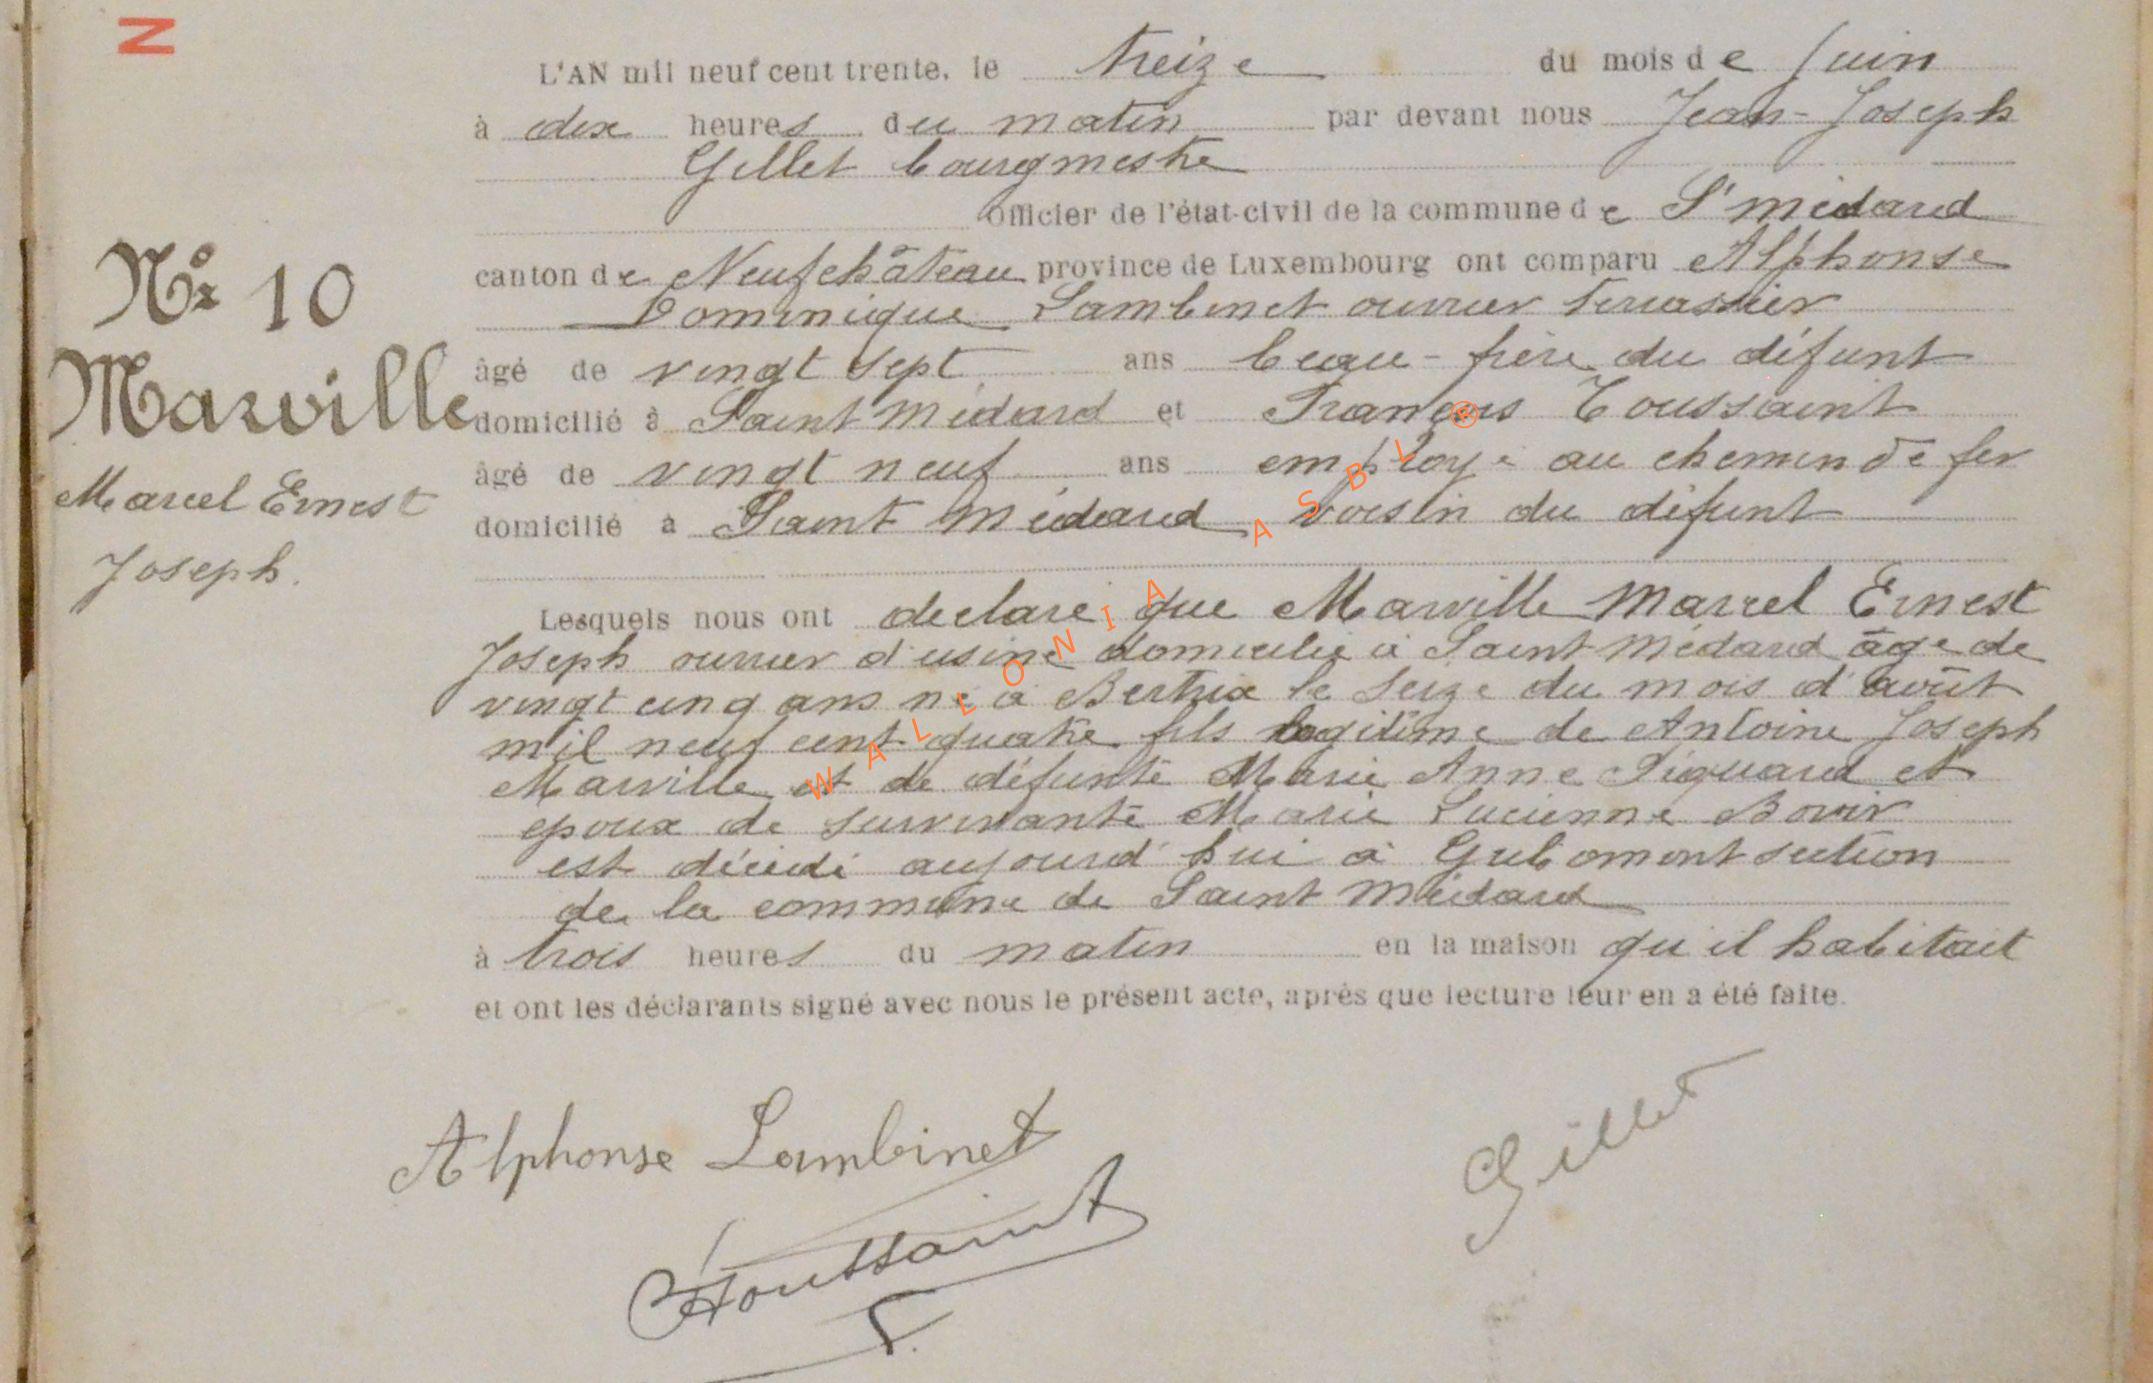 N
L'AN mil neuf cent trente, le treize du mois de juin
à dix heures du matin par devant nous Jean-Joseph
Gillet bourgmestre
Officier de l'état-civil de la commune de St Médard
Nº 10
canton de Neufchâteau province de Luxembourg ont comparu Alphonse
Dominique Lambinet ouvrier terrassier
Marville
âgé de vingt sept ans beau-frère du défunt
domicilié à Saint Médard et François Toussaint
âgé de vingt neuf ans employé au chemin de fer
Marcel Ernest
domicilié à Saint Médard voisin du défunt
Joseph.
Lesquels nous ont declaré que Marville Marcel Ernest
Joseph ouvrier d'usine domicilié à Saint Médard âgé de
vingt cinq ans né à Bertrix le seize du mois d'août
mil neuf cent quatre fils légitime de Antoine Joseph
Marville et de défunte Marie Anne Piquard et
epoux de survivante Marie Lucienne Bovir
est décédé aujourd'hui à Gribomont section
de la commune de Saint Médard
à trois heures du matin en la maison qu'il habitait
et ont les déclarants signé avec nous le présent acte, après que lecture leur en a été faite.
WALLONIA ASBL ®
Alphonse Lambinet
Gillet
Toussaint